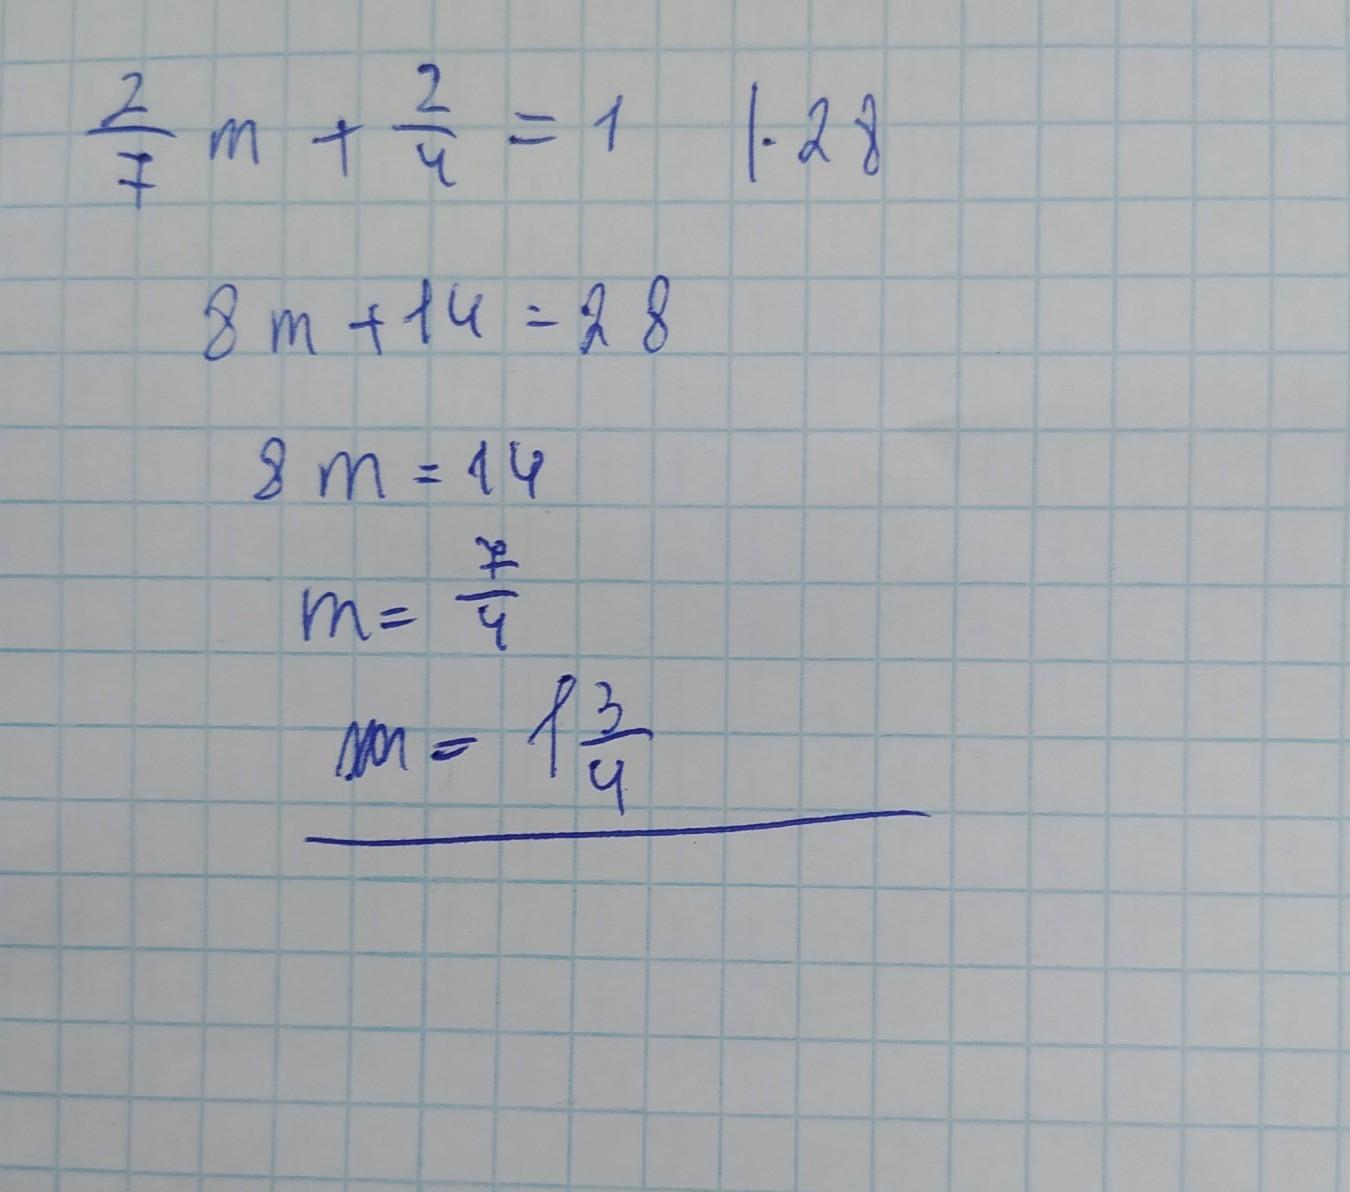 2/7 m + 2/4 = 1 |·28
8m + 14 = 28
8m = 14
m = 7/4
m = 1 3/4